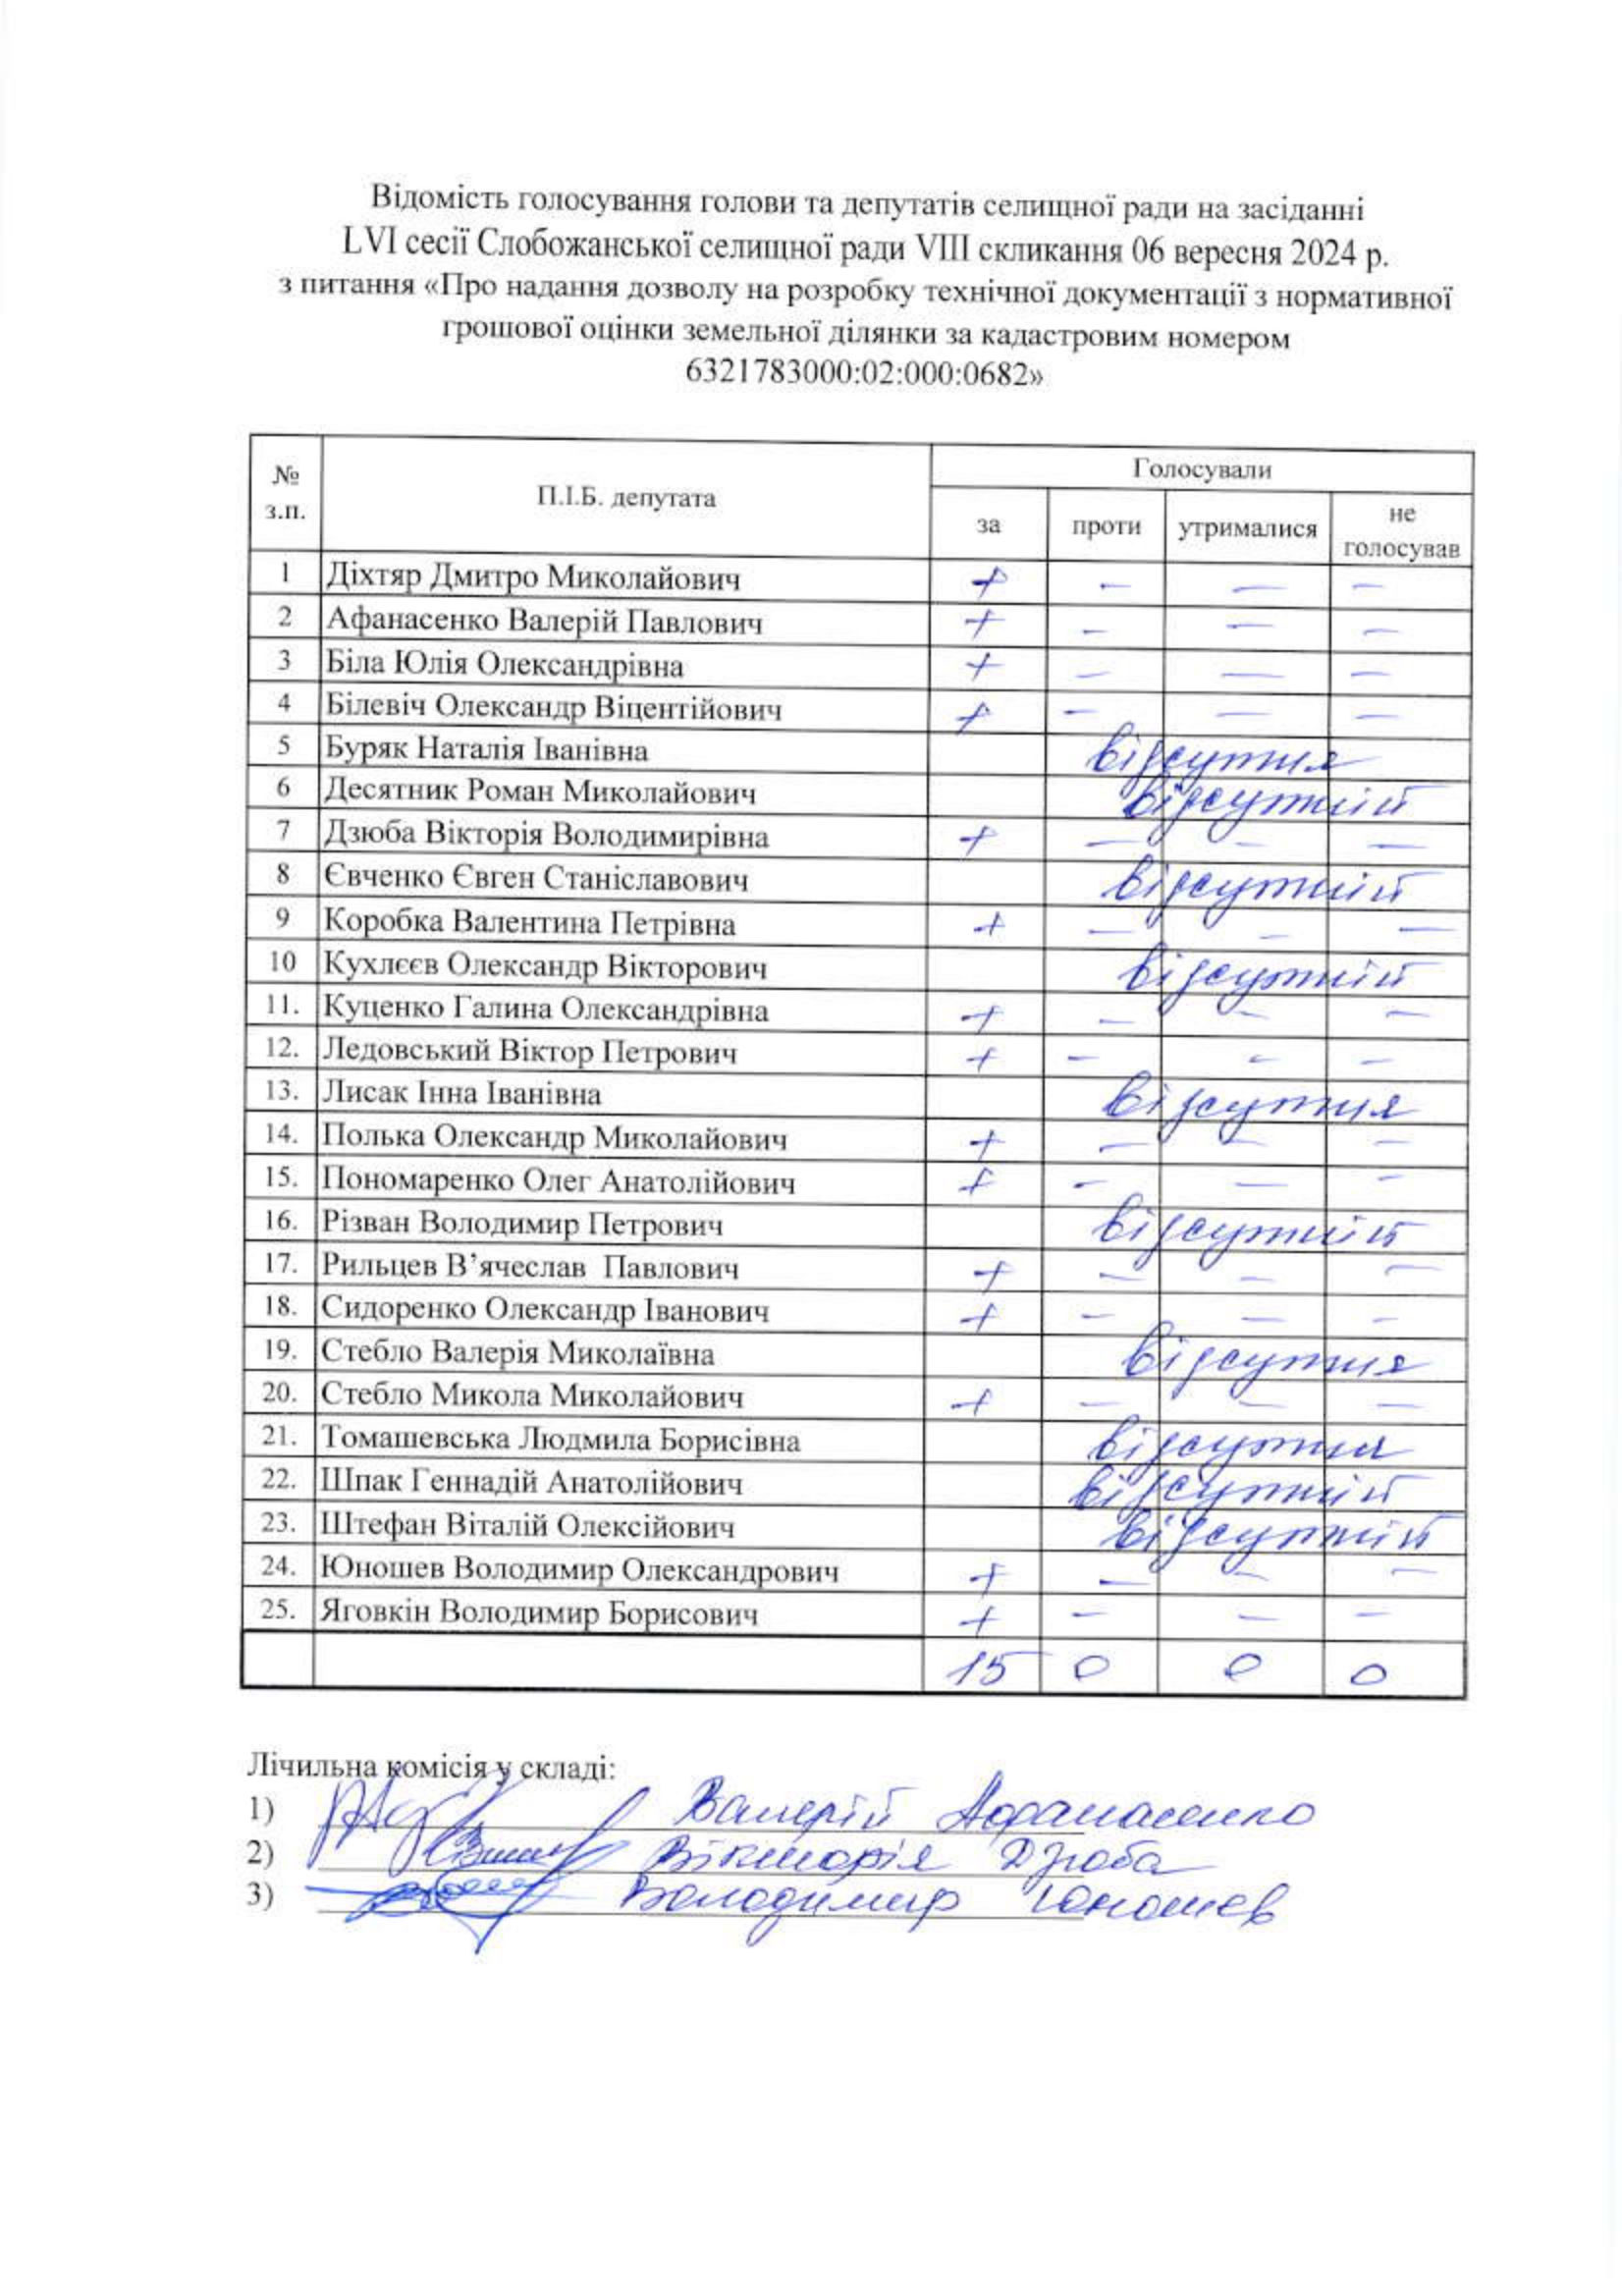 Відомість голосування голови та депутатів селищної ради на засіданні
LVI сесії Слобожанської селищної ради VIII скликання 06 вересня 2024 р.
з питання «Про надання дозволу на розробку технічної документації з нормативної
грошової оцінки земельної ділянки за кадастровим номером
6321783000:02:000:0682»
№ з.п. П.І.Б. депутата Голосували
за проти утрималися не голосував
1 Діхтяр Дмитро Миколайович + - - -
2 Афанасенко Валерій Павлович + - - -
3 Біла Юлія Олександрівна + - - -
4 Білевіч Олександр Віцентійович + - - -
5 Буряк Наталія Іванівна відсутня
6 Десятник Роман Миколайович відсутній
7 Дзюба Вікторія Володимирівна + - - -
8 Євченко Євген Станіславович відсутній
9 Коробка Валентина Петрівна + - - -
10 Кухлєєв Олександр Вікторович відсутній
11. Куценко Галина Олександрівна + - - -
12. Ледовський Віктор Петрович + - - -
13. Лисак Інна Іванівна відсутня
14. Полька Олександр Миколайович + - - -
15. Пономаренко Олег Анатолійович + - - -
16. Різван Володимир Петрович відсутній
17. Рильцев В’ячеслав Павлович + - - -
18. Сидоренко Олександр Іванович + - - -
19. Стебло Валерія Миколаївна відсутня
20. Стебло Микола Миколайович + - - -
21. Томашевська Людмила Борисівна відсутня
22. Шпак Геннадій Анатолійович відсутній
23. Штефан Віталій Олексійович відсутній
24. Юношев Володимир Олександрович + - - -
25. Яговкін Володимир Борисович + - - -
15 0 0 0
Лічильна комісія у складі:
1) Валерій Афанасенко
2) Вікторія Дзюба
3) Володимир Юношев